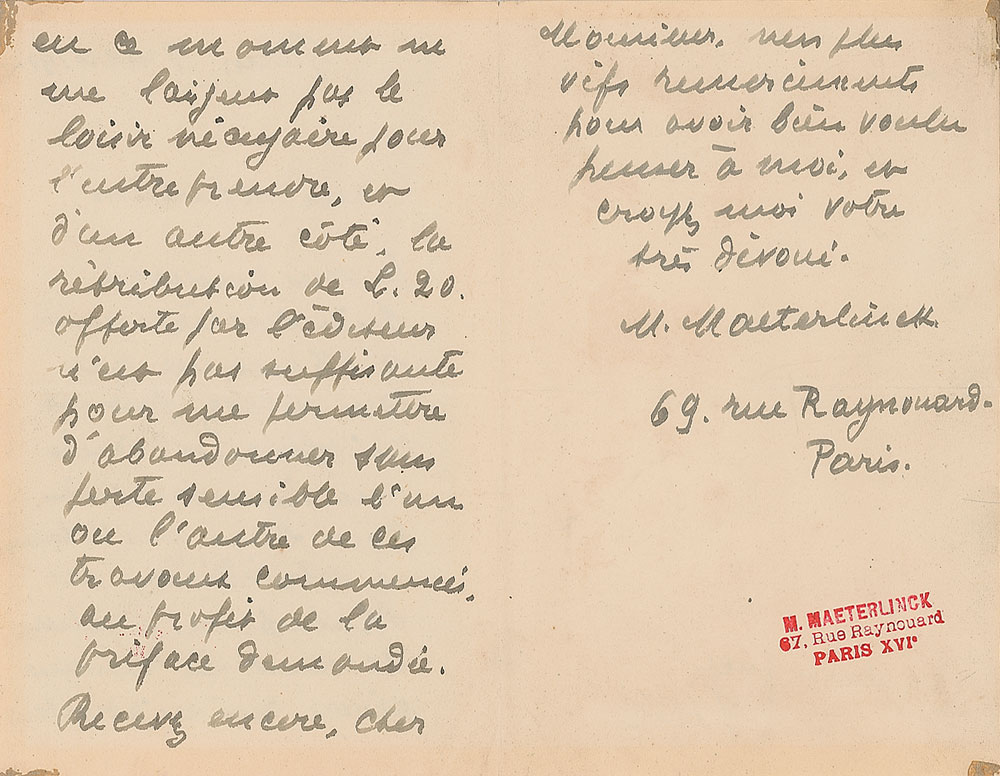 en ce moment ne
me laissent pas le
loisir nécessaire pour
l'entreprendre, et
d'un autre côté, la
rétribution de L. 20.
offerte par l'éditeur
n'est pas suffisante
pour me permettre
d'abandonner sans
perte sensible l'un
ou l'autre de ces
travaux commencés,
au profit de la
préface demandée.
Recevez encore, cher
Monsieur, mes plus
vifs remerciements
pour avoir bien voulu
penser à moi, et
croyez moi votre
très dévoué.
M. Maeterlinck
69. rue Raynouard-
Paris.
M. MAETERLINCK
67, Rue Raynouard
PARIS XVIe